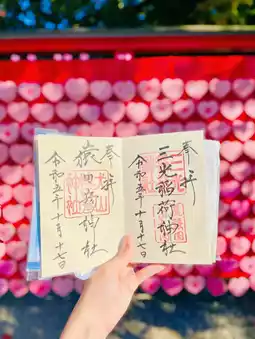 奉拝
三光稲荷神社
令和五年十月十七日
奉拝
猿田彦神社
令和五年十月十七日